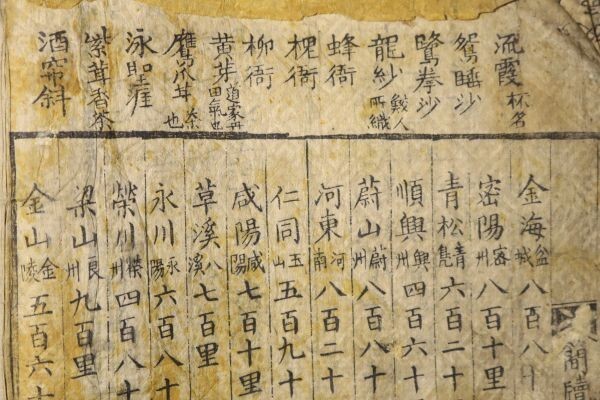 流霞 杯名
鴛睡沙
鷺拳沙
龍紗 鮫人所織
蜂衙
槐衙
柳衙
黄芽 道家丹田氣也
鷹爪茸 茶也
泳聖涯
紫茸香茶
酒帘斜
金海 盆城 八百八十
密陽 密州 八百十里
青松 青鳧 六百二十
順興 興州 四百六十
蔚山 蔚州 八百八十
河東 河南 八百二十
仁同 玉山 五百九十
咸陽 咸陽 七百十里
草溪 八溪 七百里
永川 永陽 六百八十
榮川 榮州 四百八十
梁山 良州 九百里
金山 金陵 五百六十
簡牘